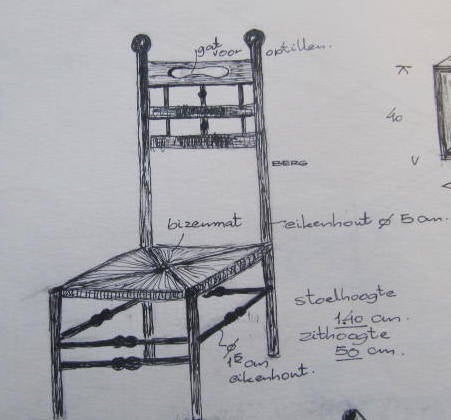 gat voor optillen.
40
BERG
bizenmat
eikenhout ø 5 cm.
stoelhoogte
140 cm.
zithoogte
50 cm.
ø
15 cm
eikenhout.